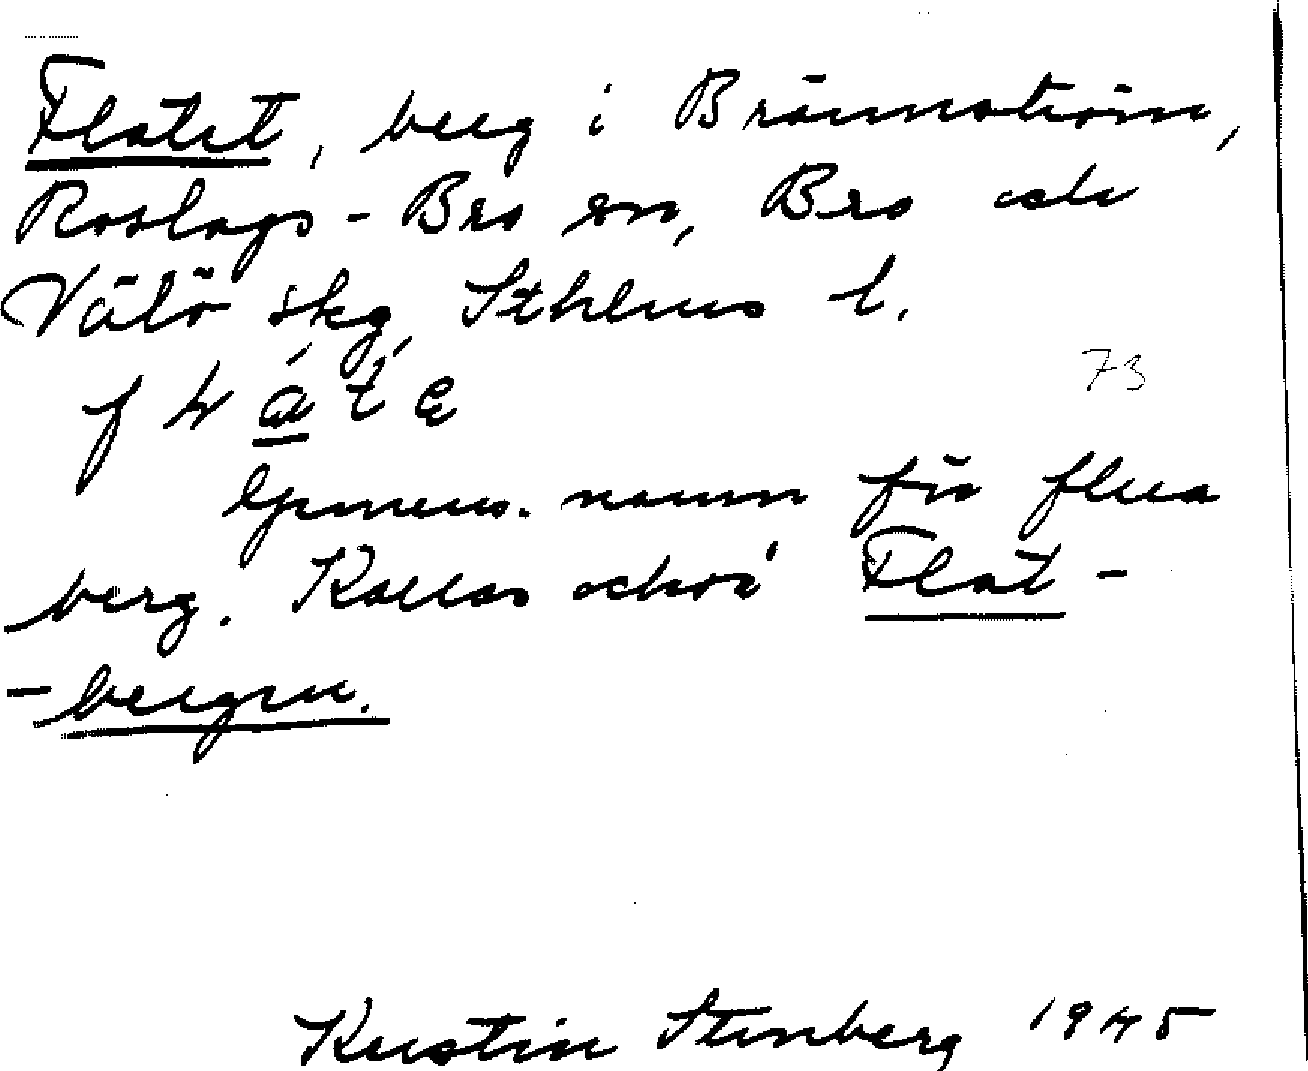 Flatet, berg i Brännström,
Roslags-Bro sn, Bro och
Vätö skg, Sthlms l.
73
Gemens. namn för flera
berg. Kallas också Flat-
-bergen.
Kerstin Stenberg 1945